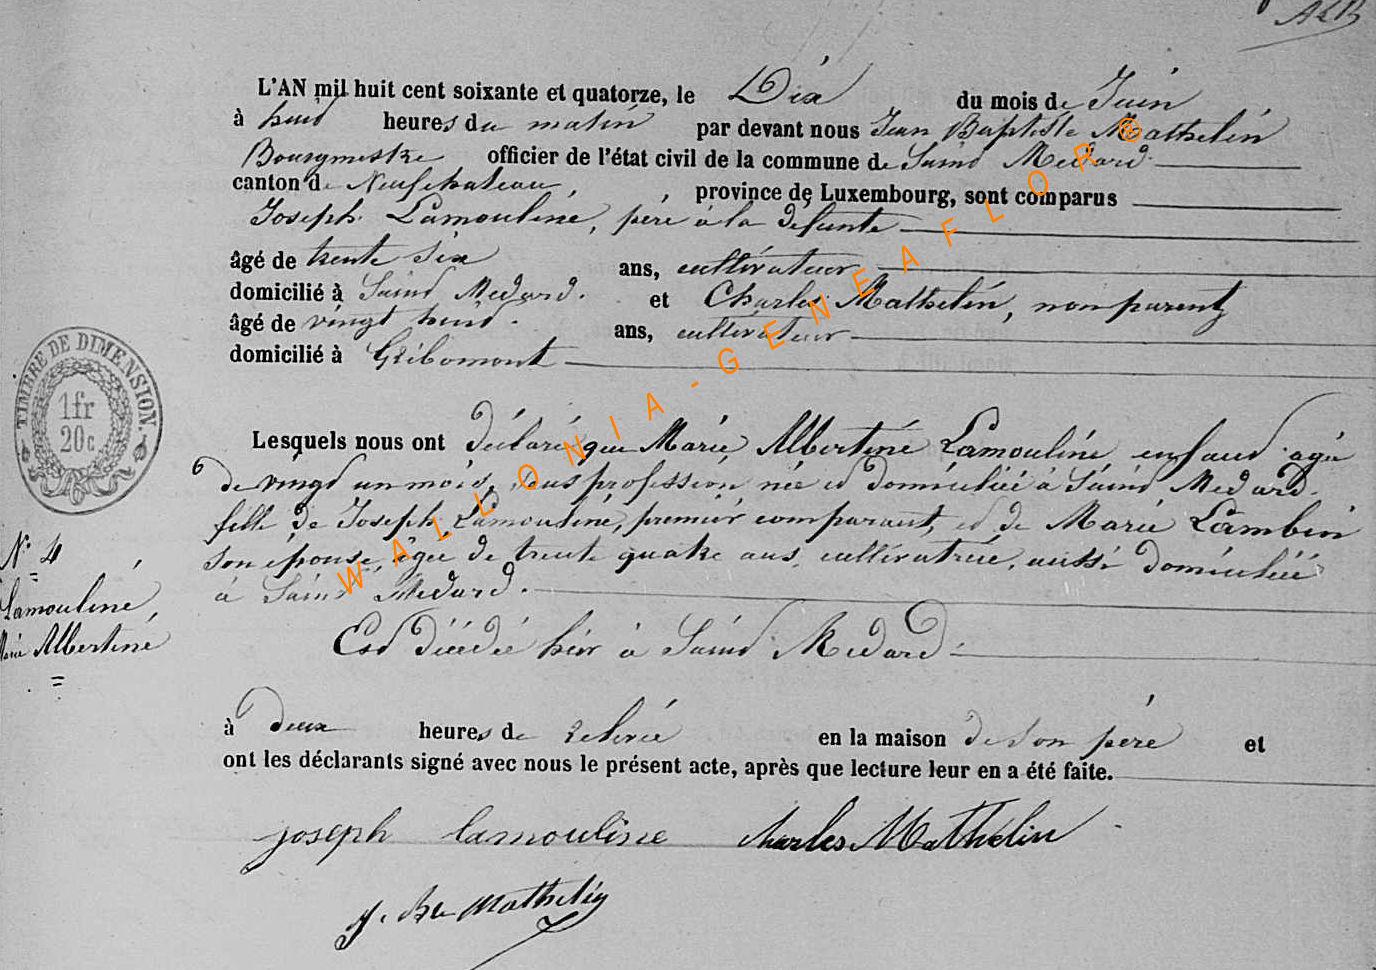 L'AN mil huit cent soixante et quatorze, le Dix du mois de Juin
à huit heures du matin par devant nous Jean Baptiste Mathelin
Bourgmestre officier de l'état civil de la commune de Saint Médard
canton de Neufchateau, province de Luxembourg, sont comparus
Joseph Lamouline, père à la défunte
âgé de trente six ans, cultivateur
domicilié à Saint Médard. et Charles Mathelin, non parent
âgé de vingt huit ans, cultivateur
domicilié à Gribomont
TIMBRE DE DIMENSION.
1fr
20c
Lesquels nous ont déclaré que Marie Albertine Lamouline enfant agée
de vingt un mois, sans profession, née et domiciliée à Saint Médard.
fille de Joseph Lamouline, premier comparant, et de Marie Lambin
son épouse, âgée de trente quatre ans, cultivatrice, aussi domiciliée
à Saint Médard.
Est décédée hier à Saint Médard.
N° 4
Lamouline,
Marie Albertine
à deux heures de relevée en la maison de son père et
ont les déclarants signé avec nous le présent acte, après que lecture leur en a été faite.
joseph lamouline Charles Mathelin
J. Bte Mathelin
WALLONIA-GENEAFLOR®